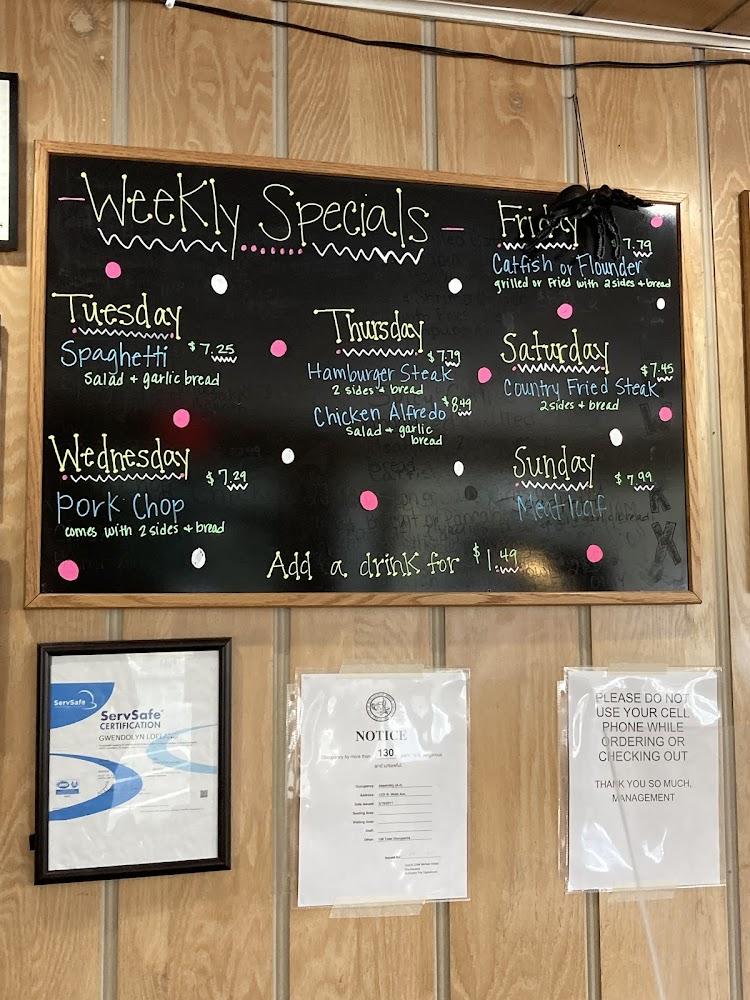 Weekly Specials
Tuesday
Spaghetti $7.25
Salad + garlic bread
Wednesday
$7.29
Pork Chop
comes with 2 sides + bread
Thursday
Hamburger Steak $7.79
2 sides + bread
Chicken Alfredo $8.49
Salad + garlic
bread
Friday
$7.79
Catfish or Flounder
grilled or fried with 2 sides + bread
Saturday
$7.45
Country Fried Steak
2 sides + bread
Sunday
$7.99
Meatloaf
Add a drink for $1.49
ServSafe
ServSafe®
CERTIFICATION
GWENDOLYN
NOTICE
Occupancy by more than 130
and unlawful.
Occupancy:
Address:
Date Issued:
Seating Area:
Waiting Area:
Staff:
Other:
Issued By:
PLEASE DO NOT
USE YOUR CELL
PHONE WHILE
ORDERING OR
CHECKING OUT
THANK YOU SO MUCH,
MANAGEMENT